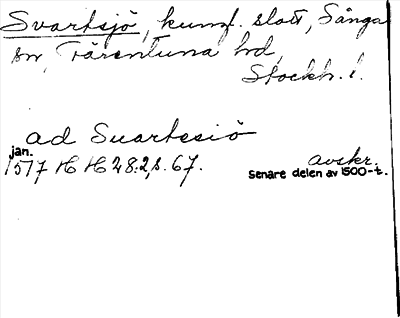 Svartsjö, kungl. slott, Sånga
sn, Färentuna hd,
Stockh. l.
ad Suartesiö
jan.
1517 H H 28:2, s. 67.
avskr.
senare delen av 1500-t.